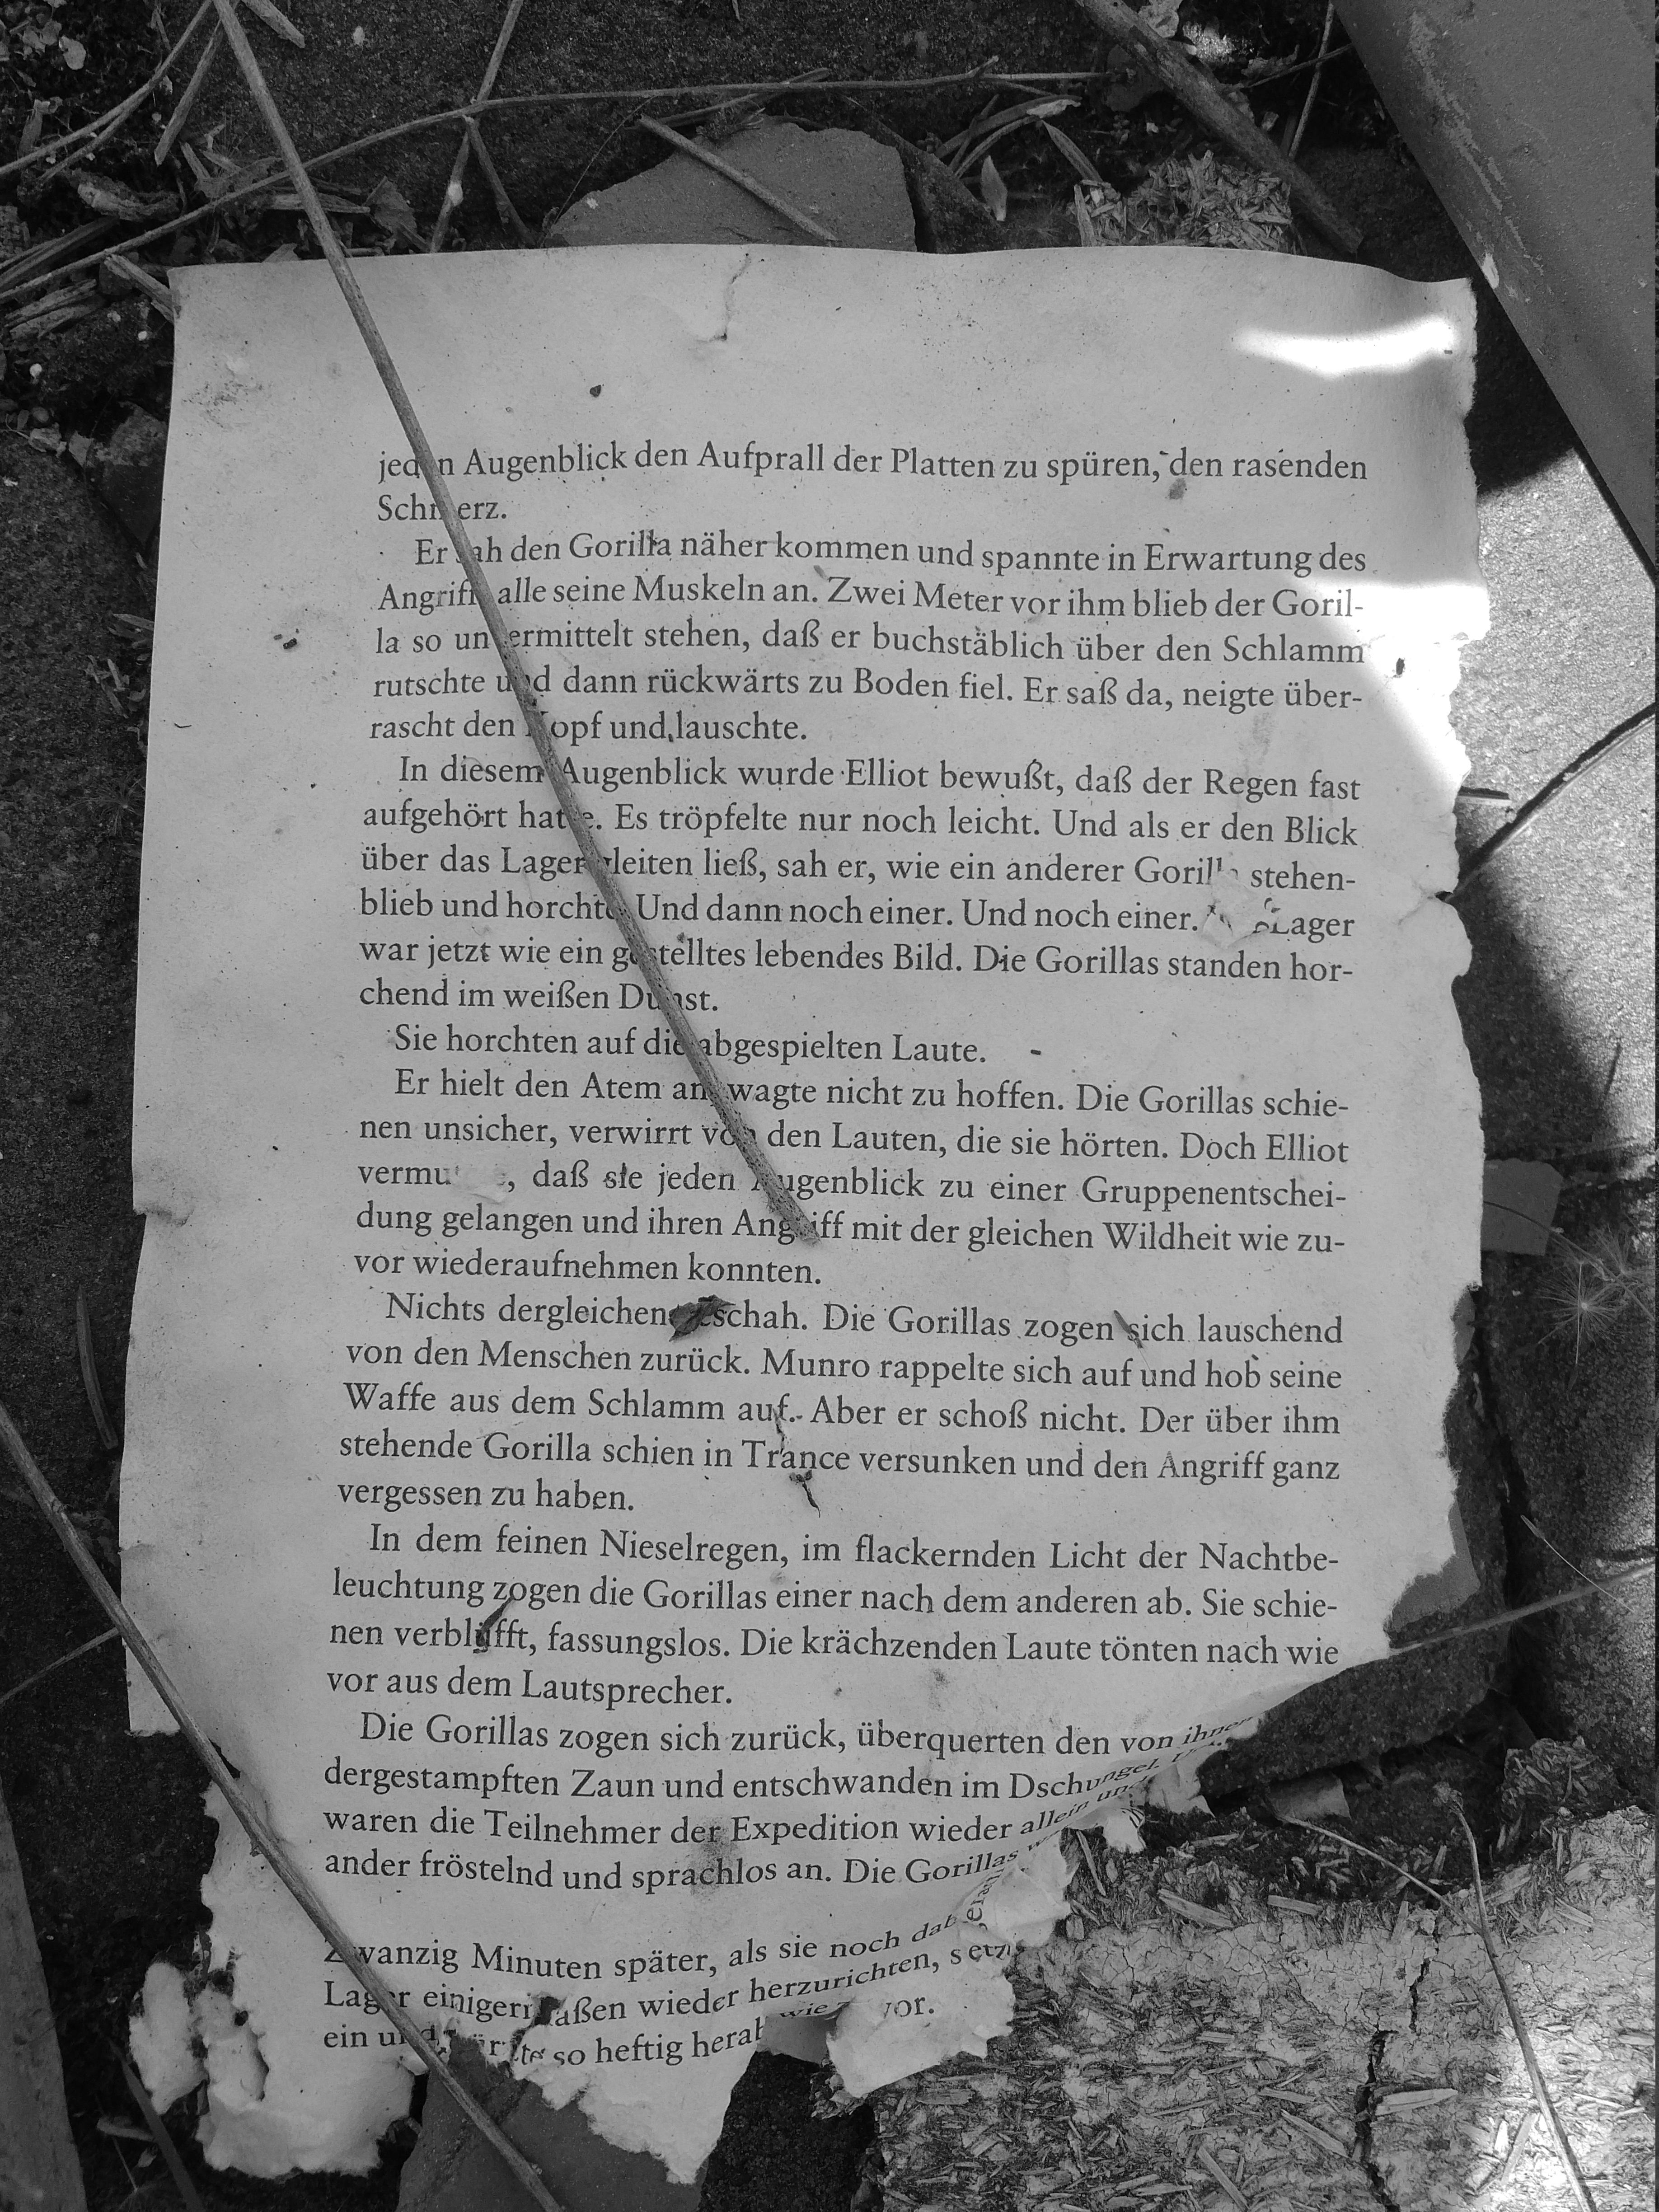 jeden Augenblick den Aufprall der Platten zu spüren, den rasenden
Schmerz.
Er sah den Gorilla näher kommen und spannte in Erwartung des
Angriffs alle seine Muskeln an. Zwei Meter vor ihm blieb der Goril-
la so unvermittelt stehen, daß er buchstäblich über den Schlamm
rutschte und dann rückwärts zu Boden fiel. Er saß da, neigte über-
rascht den Kopf und lauschte.
In diesem Augenblick wurde Elliot bewußt, daß der Regen fast
aufgehört hatte. Es tröpfelte nur noch leicht. Und als er den Blick
über das Lager gleiten ließ, sah er, wie ein anderer Gorilla stehen-
blieb und horchte. Und dann noch einer. Und noch einer. Lager
war jetzt wie ein gestelltes lebendes Bild. Die Gorillas standen hor-
chend im weißen Dunst.
Sie horchten auf die abgespielten Laute.
Er hielt den Atem an, wagte nicht zu hoffen. Die Gorillas schie-
nen unsicher, verwirrt von den Lauten, die sie hörten. Doch Elliot
vermutete, daß sie jeden Augenblick zu einer Gruppenentschei-
dung gelangen und ihren Angriff mit der gleichen Wildheit wie zu-
vor wiederaufnehmen konnten.
Nichts dergleichen geschah. Die Gorillas zogen sich lauschend
von den Menschen zurück. Munro rappelte sich auf und hob seine
Waffe aus dem Schlamm auf. Aber er schoß nicht. Der über ihm
stehende Gorilla schien in Trance versunken und den Angriff ganz
vergessen zu haben.
In dem feinen Nieselregen, im flackernden Licht der Nachtbe-
leuchtung zogen die Gorillas einer nach dem anderen ab. Sie schie-
nen verblüfft, fassungslos. Die krächzenden Laute tönten nach wie
vor aus dem Lautsprecher.
Die Gorillas zogen sich zurück, überquerten den von ihnen
dergestampften Zaun und entschwanden im Dschungel.
waren die Teilnehmer der Expedition wieder allein und
ander fröstelnd und sprachlos an. Die Gorillas
Zwanzig Minuten später, als sie noch
Lager einigermaßen wieder herzurichten,
ein und so heftig herab wie zuvor.